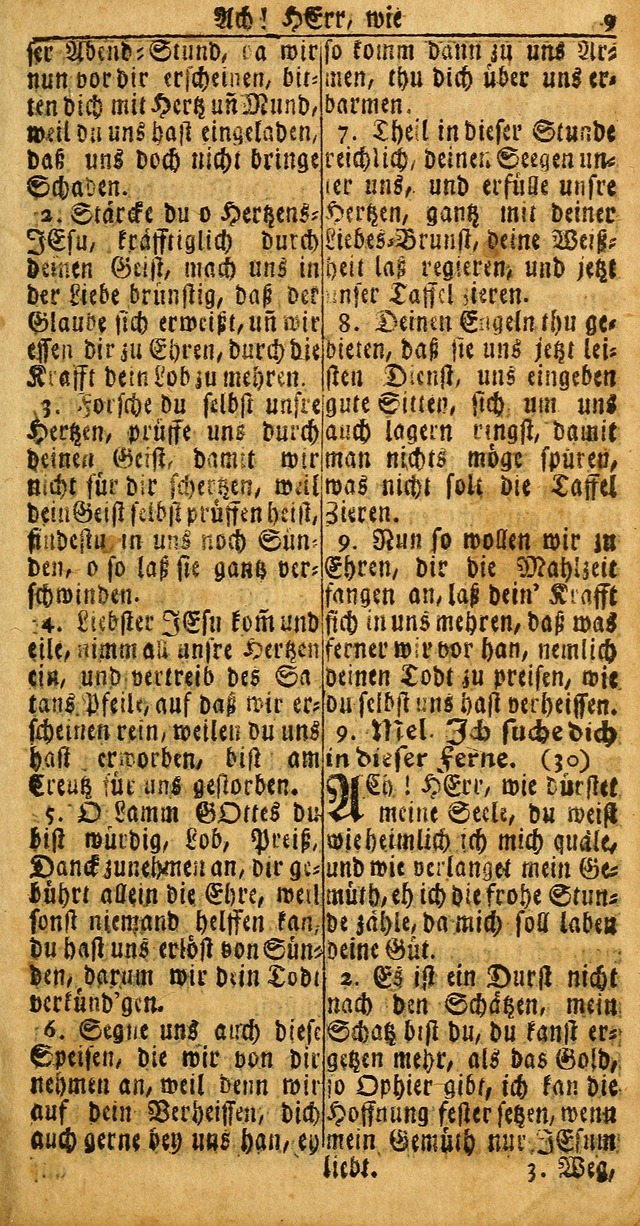 Ach! HErr, wie 9
ser Abend-Stund, da wir
nun vor dir erscheinen, bit-
ten dich mit Hertz uñ Mund,
weil du uns hast eingeladen,
daß uns doch nicht bringe
Schaden.
2. Stärcke du o Hertzens-
JEsu, kräfftiglich durch
deinen Geist, mach uns in
der Liebe brünstig, daß der
Glaube sich erweißt, uñ wir
essen dir zu Ehren, durch die
Krafft dein Lob zu mehren.
3. Forsche du selbst unsre
Hertzen, prüffe uns durch
deinen Geist, damit wir
nicht für dir schertzen, weil
dein Geist selbst prüffen heist,
findestu in uns noch Sün-
den, o so laß sie gantz ver-
schwinden.
4. Liebster JEsu kom̃ und
eile, nimm an unsre Hertzen
ein, und vertreib des Sa
tans Pfeile, auf daß wir er-
scheinen rein, weilen du uns
hast erworben, bist am
Creutz für uns gestorben.
5. O Lamm GOttes du
bist würdig, Lob, Preiß,
Danck zunehmen an, dir ge-
bührt allein die Ehre, weil
sonst niemand helffen kan,
du hast uns erlöst von Sün-
den, darum wir dein Todt
verkünd'gen.
6. Segne uns auch diese
Speisen, die wir von dir
nehmen an, weil denn wir
auf dein Verheissen, dich
auch gerne bey uns han, ey
so komm dann zu uns Ar-
men, thu dich über uns er-
barmen.
7. Theil in dieser Stunde
reichlich, deinen Seegen un-
ter uns, und erfülle unsre
Hertzen, gantz mit deiner
Liebes-Brunst, deine Weiß-
heit laß regieren, und jetzt
unser Taffel zieren.
8. Deinen Engeln thu ge-
bieten, daß sie uns jetzt lei-
sten Dienst, uns eingeben
gute Sitten, sich um uns
auch lagern ringst, damit
man nichts möge spüren,
was nicht solt die Taffel
Zieren.
9. Nun so wollen wir zu
Ehren, dir die Mahlzeit
fangen an, laß dein' Krafft
sich in uns mehren, daß was
ferner wir vor han, nemlich
deinen Todt zu preisen, wie
du selbst uns hast verheissen.
9. Mel. Ich suche dich
in dieser Ferne. (30)
ACh! HErr, wie dürstet
meine Seele, du weist
wie heimlich ich mich quäle,
und wie verlanget mein Ge-
müth, eh ich die frohe Stun-
de zähle, da mich soll laben
deine Güt.
2. Es ist ein Durst nicht
nach den Schätzen, mein
Schatz bist du, du kanst er-
getzen mehr, als das Gold,
so Ophier gibt, ich kan die
Hoffnung fester setzen, wenn
mein Gemüth nur JEsum
liebt. 3. Weg,